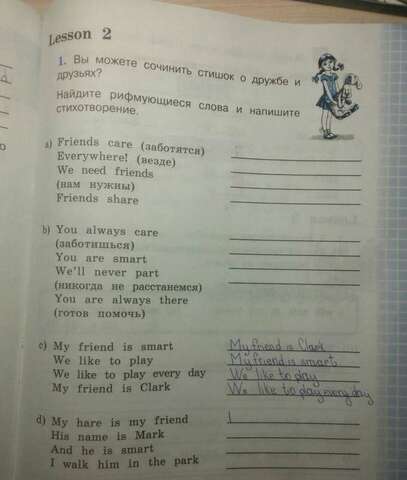 Lesson 2
1. Вы можете сочинить стишок о дружбе и
друзьях?
Найдите рифмующиеся слова и напишите
стихотворение.
a) Friends care (заботятся)
Everywhere! (везде)
We need friends
(нам нужны)
Friends share
b) You always care
(заботишься)
You are smart
We'll never part
(никогда не расстанемся)
You are always there
(готов помочь)
c) My friend is smart My friend is Clark
We like to play My friend is smart
We like to play every day We like to play
My friend is Clark We like to play every day
d) My hare is my friend
His name is Mark
And he is smart
I walk him in the park